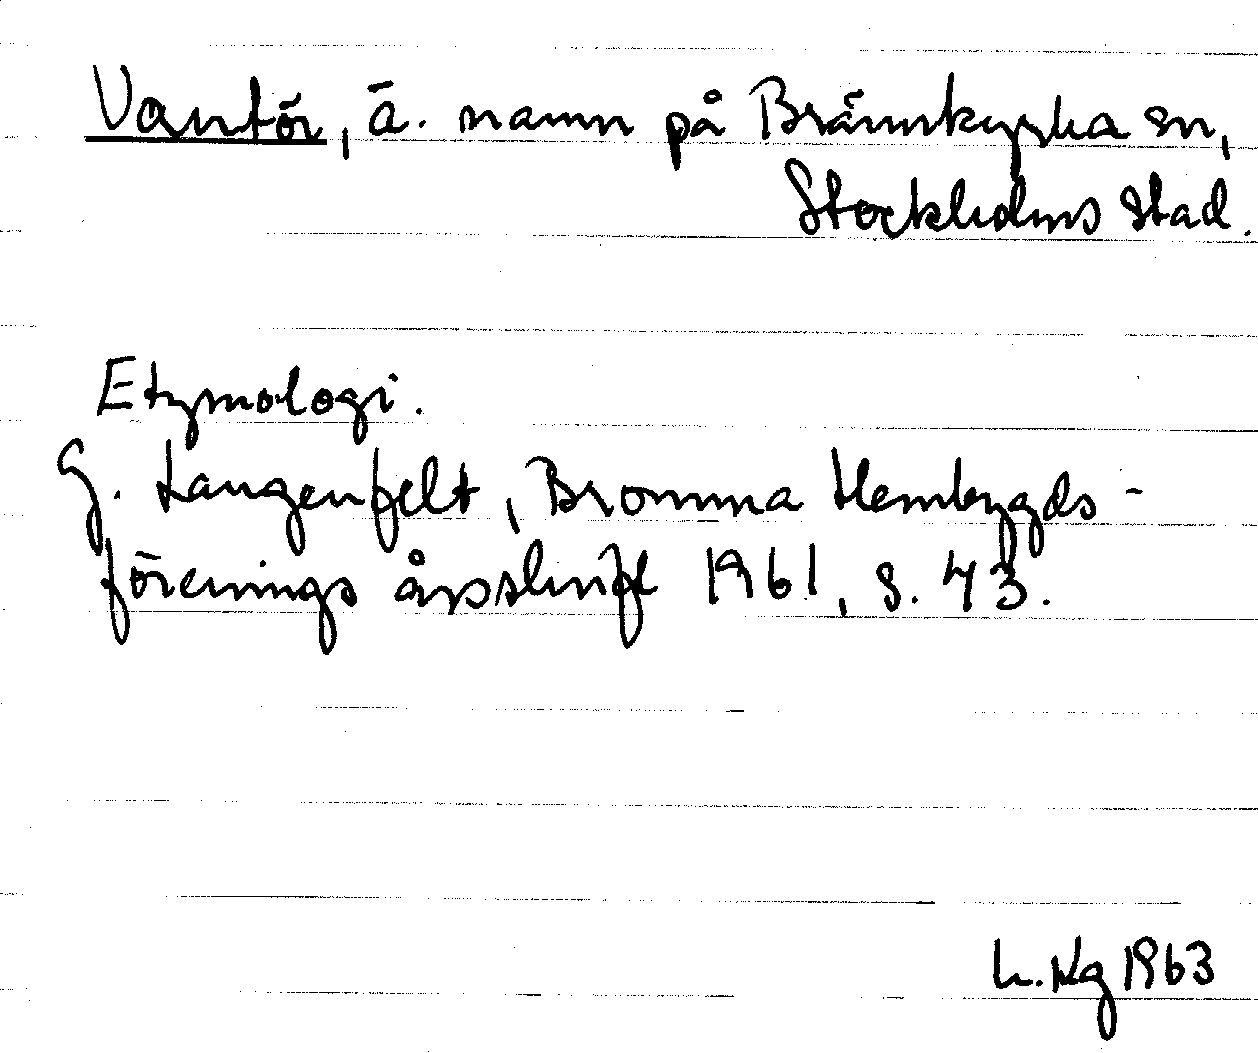 Vantör, ä. namn på Brännkyrka sn,
Stockholms stad.
Etymologi.
G. Langenfelt, Bromma Hembygds-
förenings årsskrift 1961, s. 43.
L. Hg 1963